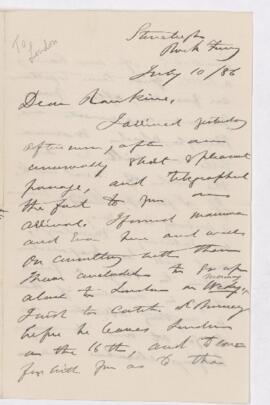 To
London
Rock Ferry
July 10/86
Dear Rankine,
I arrived yesterday
afternoon, after an
unusually short & pleasant
passage, and telegraphed
the fact to you on
arrival. I found mamma
and Eva here and
on consulting with them
I have concluded to go up
alone to London on
I wish to catch
before he leaves London
on the 16th, and
with you as to the